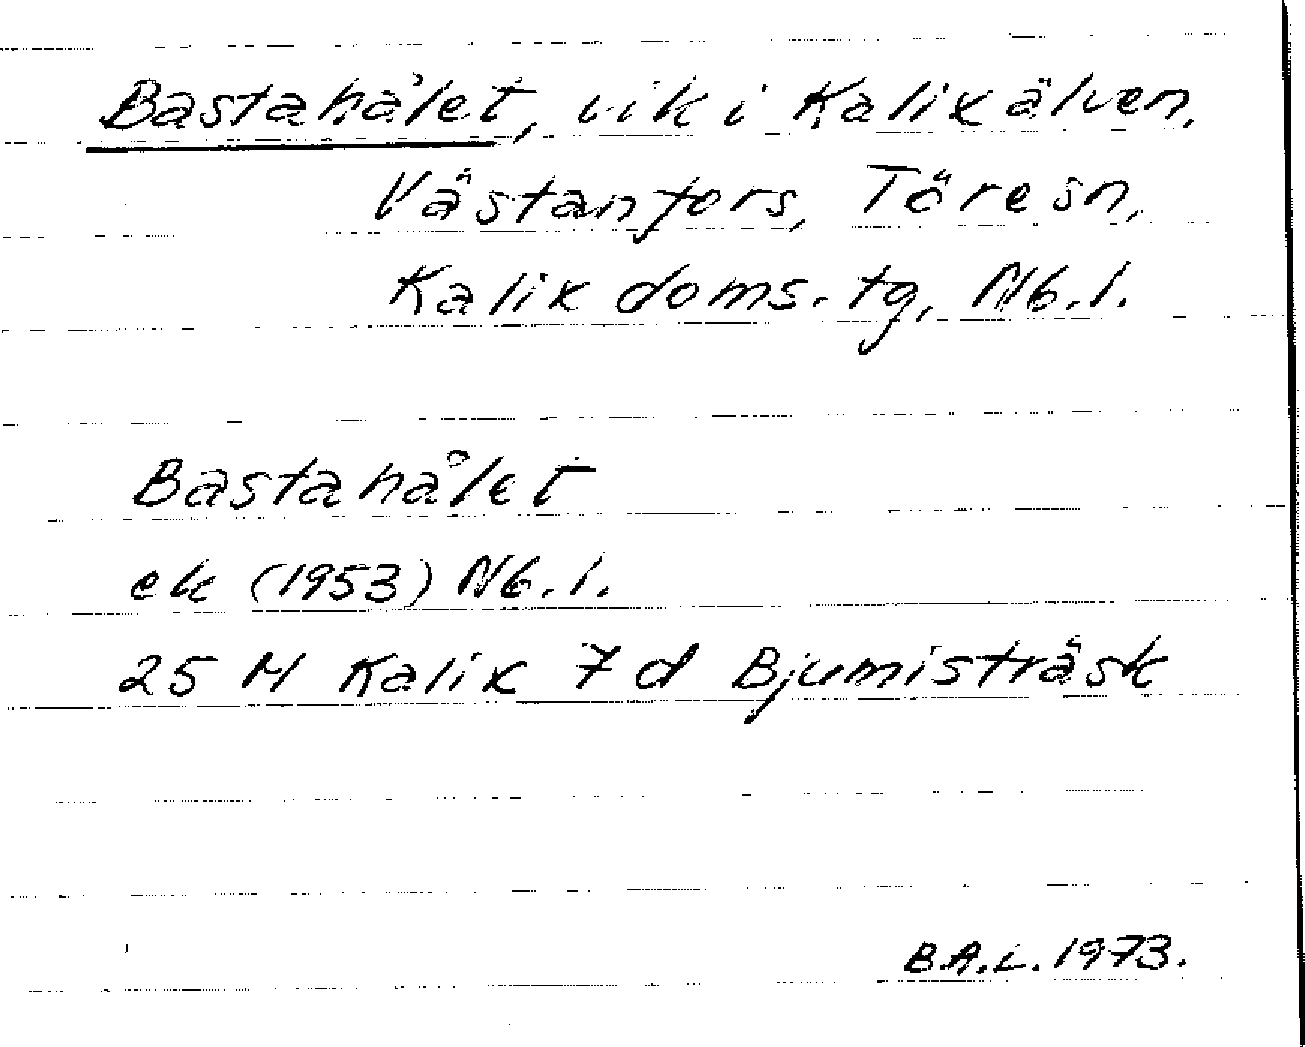 Bastahålet, vik i Kalixälven,
Västanfors, Töre sn,
Kalix doms. tg, Nb. l.
Bastahålet
ek (1953) Nb. l.
25 M Kalix 7 d Bjumisträsk
B.A.L. 1973.